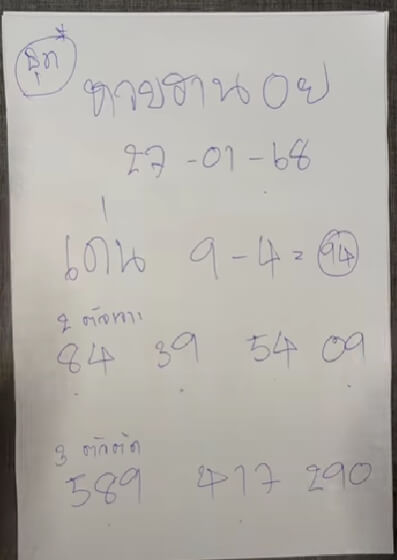 หวยฮานอย
27-01-68
เด่น 9-4= 94
2 ตัวเจาะ
84 39 54 09
3 ตัวตัด
589 417 290